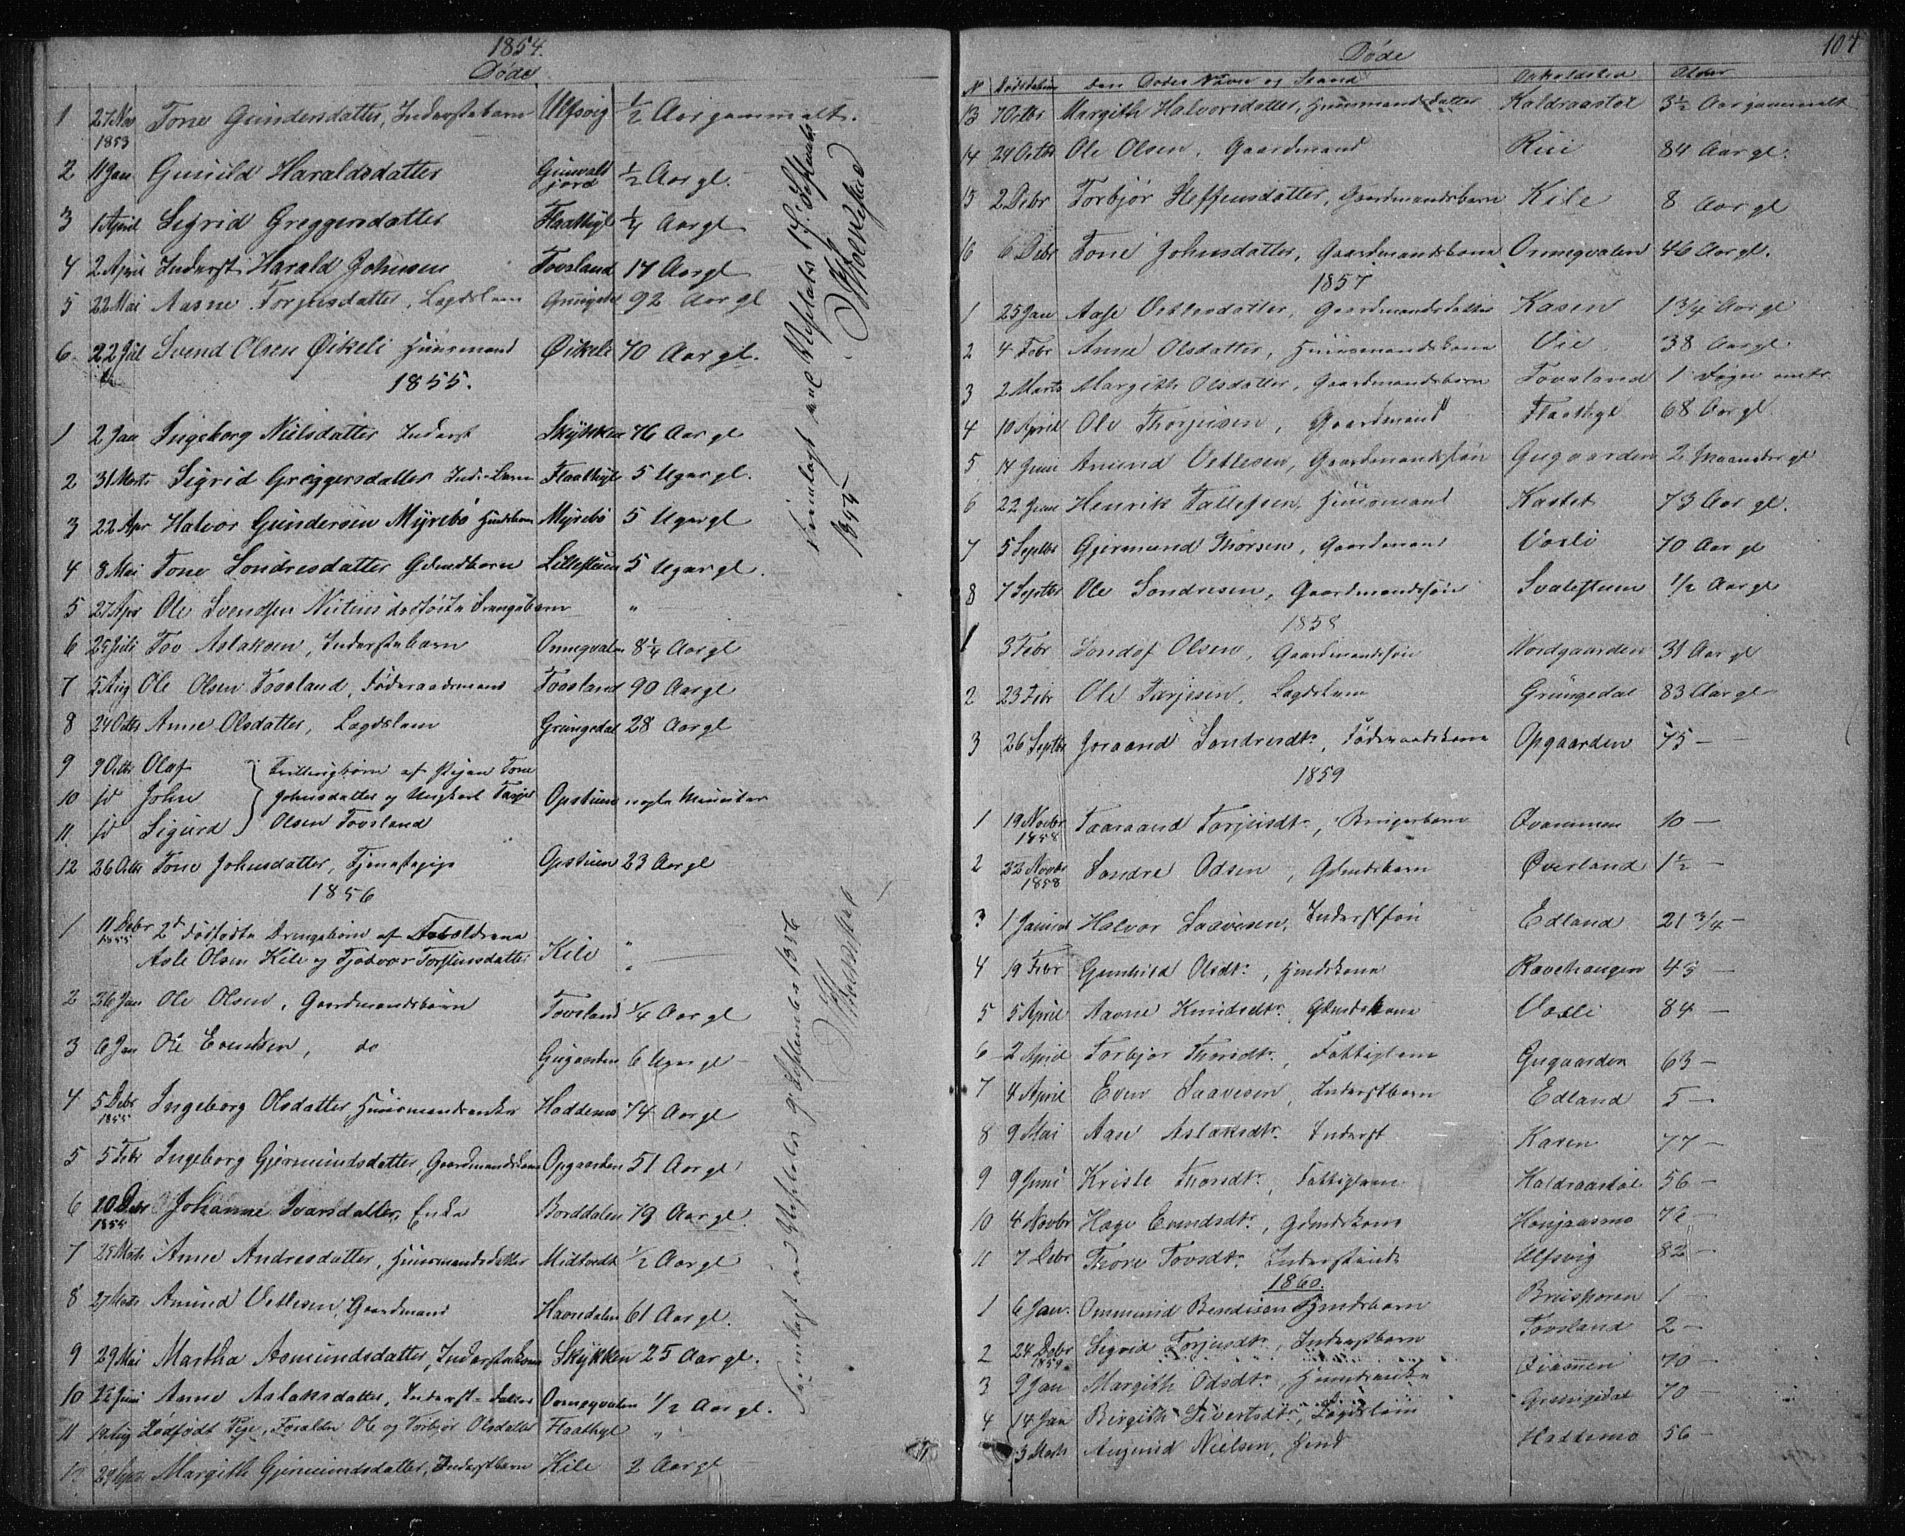 1854.
Døde
1 27 Nov 1853 Tone Gundersdatter, Inderstebarn Ulfsvig 1/2 Aar gammelt.
2 11 Jan Gunild Haraldsdatter Gunvaltjord 1/2 Aar gl.
3 1 April Sigrid Greggersdatter Flaathyl 1/4 Aar gl
4 2 April Inderst Harald Johnsen Tovsland 17 Aar gl
5 22 Mai Aasne Torjusdatter, Lægdslem 92 Aar gl
6. 22 Jul Svend Olsen Øikeli Huusmand Øikeli 70 Aar gl.
1855.
1 2 Jan Ingeborg Nielsdatter Inderst Skykken 76 Aar gl
2 31 Marts Sigrid Greggersdatter Inds. Barn Flaathyl 5 Uger gl.
3 22 Apr Halvor Gundersen Myrebø Hundsbarn Myrebø 5 Uger gl
4 8 Mai Tone Sondresdatter Gdmdbarn Lillestuen 5 Uger gl.
5 27 Apr Ole Svendsen dødfødte Drengebarn "
6 25 Juli Tov Aslaksen, Inderstebarn Omnegvalen 8 1/4 Aar gl
7 5 Aug Ole Olsen Tovsland, Føderaadsmand Tovsland 90 Aar gl
8 24 Octbr Anne Olsdatter, Lægdslem Grungedal 28 Aar gl
9 9 Octbr Olaf } Trillingbørn af Pigen Tone
10 id John } Johnsdatter og Ungkarl Tarjei Opstuen nogle Minuter
11. id Sigurd } Olsen Tovsland
12 26 Octbr Tone Johnsdatter, Tjenestepige Opstuen 23 Aar gl
1856
1 11 Debr 1855 2de dødfødte Drengebørn af Forældrene
Asle Olsen Kile og Tjøbvor Torstensdatter Kile "
2 26 Jan Ole Olsen, Gaardmandsbarn Tovsland 1/4 Aar gl
3 6 Jan Ole Evensen, do Gugaarden 6 Uger gl
4 5 Debr 1855 Ingeborg Olsdatter, Huusmandsenke Haddemo 74 Aar gl
5 5 Febr Ingeborg Gjermundsdatter, Gaardmandskone Opgaarden 51 Aar gl
6 20 Debr Johanne Ivarsdatter, Enke Borddalen 79 Aar gl.
7 25 Marts Anne Andresdatter, Huusmandsdatter Midtvedt 1/2 Aar gl
8 27 Marts Amund Vetlesen, Gaardmand Havndalen 61 Aar gl.
9 29 Mai Martha Asmundsdatter, Inderstekone Skykken 25 Aar gl.
10 22 Juni Anne Aslaksdatter, Inderst-datter Omnegvalen 1/2 Aar gl.
11 Aug Dødfødt Pige, Forældre Ole og Torbjør Olsdatter Flaathyl "
12 29 Margith Gjermundsdatter, Inderstbarn Kile 2 Aar gl
Fremlagt ved Visitats 17 September 1855
Fremlagt ved Visitats 9 September 1856
104
Døde
N Dødsdatum Den Dødes Navn og Stand Opholdsted Alder
13 7 Octbr Margith Halvorsdatter, Huusmandsdatter Haldraastøl 3 1/2 Aar gammelt
14 24 Octbr Ole Olsen, Gaardmand Rui 84 Aar gl.
15 2 Debr Torbjør Steffensdatter, Gaardmandsbarn Kile 8 Aar gl
16 6 Debr Tone Johnsdatter, Gaardmandskone Omnegvalen 46 Aar gl.
1857
1 25 Jan Aase Vetlesdatter, Gaardmandsdatter Kasen 1 3/4 Aar gl
2 4 Febr Anne Olsdatter, Huusmandskone Vie 38 Aar gl
3 2 Marts Margith Olsdatter, Gaardmandsbarn Tovsland 1 Døgn
4 10 April Ole Thorjusen, Gaardmand Flaathyl 68 Aar gl
5 14 Juni Amund Vetlesen, Gaardmandssøn Gugaarden 2 Maaneder gl
6 22 Juni Henrik Tallefsen, Huusmand Kastet 73 Aar gl.
7 5 Septbr Gjermund Thorsen, Gaardmand Vasli 70 Aar gl
8 7 Septbr Ole Sondresen, Gaardmandssøn Svalestuen 1/2 Aar gl
1858
1 3 Febr Sondof Olsen, Gaardmandssøn Nordgaarden 31 Aar gl
2 23 Febr Ole Tarjesen, Lægdslem Grungedal 83 Aar gl
3 26 Septbr Joraand Sondresdtr, Føderaadskone Opgaarden 75 —
1859
1 19 Novbr 1858 Taaraand Torjusdtr, Brugerbarn Qvammen 10 —
2 22 Novbr 1858 Sondre Odsen, Gdmdsbarn Øverland 1 1/2 —
3 1 Januar Halvor Saavesen, Inderstsøn Edland 21 3/4 —
4 19 Febr Gunhild Olsdtr, Hmdskone Ravehaugen 43 —
5 5 April Aasne Knudsdtr, Gdmdskone Vasli 84 —
6 2 April Torbjør Thorsdtr, Fattiglem Gugaarden 63 —
7 4 April Even Saavesen, Inderstbarn Edland 5 —
8 9 Mai Aase Aslaksdtr, Inderst Kasen 77 —
9 9 Juni Kriste Thordtr, Fattiglem Haldraastøl 56 —
10 4 Novbr Hæge Evensdtr, Gdmdskone 72 —
11 7 Debr Thore Tovsdtr, Ulfsvig 82 —
1860.
1 6 Jan. Ommund Bendixen Gmdsbarn 1 —
2 24 Debr 1859 Sigrid Torjusdtr, Inderstbarn Tovsland 2 —
3 9 Jan Margith Odsdtr, Hmdsenke 70 —
4 14 Jan Birgith Sivertsdtr, Lægdslem Grungedal 70 —
5 Marts Nielsen, Haddemo 56 —